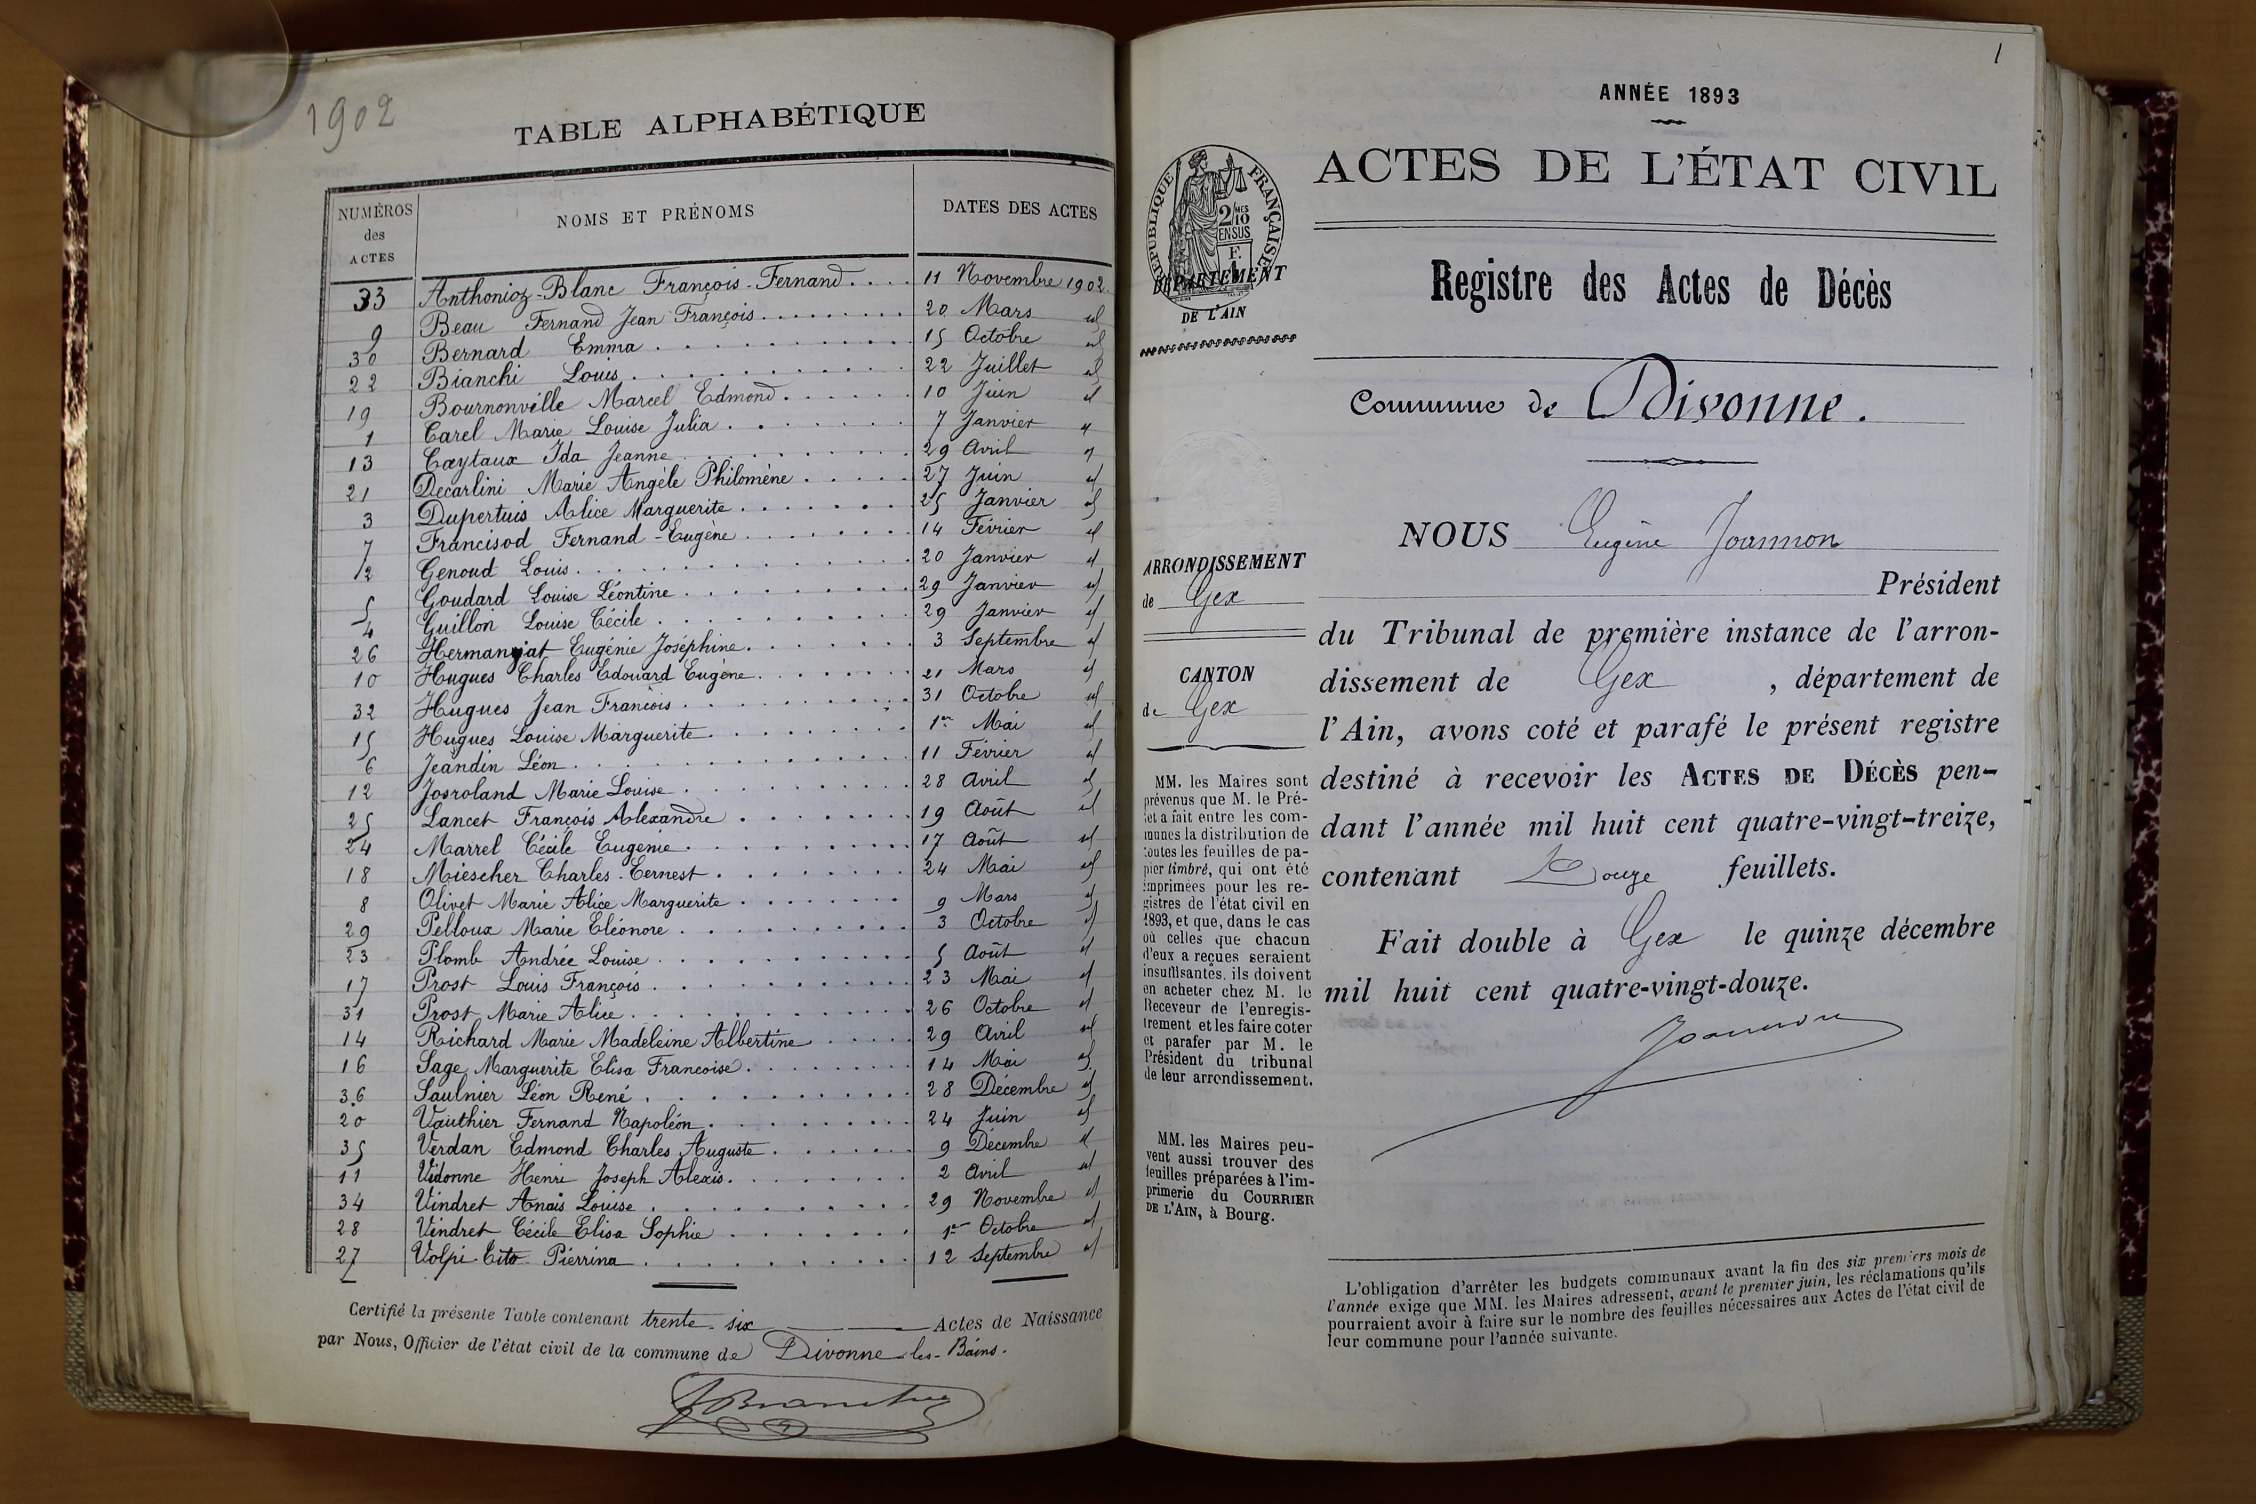 1902
TABLE ALPHABÉTIQUE
NUMÉROS des ACTES NOMS ET PRÉNOMS DATES DES ACTES
33 Anthonioz-Blanc François-Fernand 11 Novembre 1902
9 Beau Fernand Jean François 20 Mars id
30 Bernard Emma 15 Octobre id
22 Bianchi Louis 22 Juillet id
19 Bournonville Marcel Edmond 10 Juin id
1 Carel Marie Louise Julia 7 Janvier id
13 Caytaux Ida Jeanne 29 Avril id
21 Decarlini Marie Angèle Philomène 27 Juin id
3 Dupertuis Alice Marguerite 25 Janvier id
7 Francisod Fernand-Eugène 14 Février id
2 Genoud Louis 20 Janvier id
5 Goudard Louise Léontine 29 Janvier id
4 Guillon Louise Cécile 29 Janvier id
26 Hermanjat Eugénie Joséphine 3 Septembre id
10 Hugues Charles Edouard Eugène 21 Mars id
32 Hugues Jean François 31 Octobre id
15 Hugues Louise Marguerite 1er Mai id
6 Jeandin Léon 11 Février id
12 Josroland Marie Louise 28 Avril id
25 Lancet François Alexandre 19 Août id
24 Marrel Cécile Eugénie 17 Août id
18 Miescher Charles-Eernest 24 Mai id
8 Olivet Marie Alice Marguerite 9 Mars id
29 Pelloux Marie Eléonore 3 Octobre id
23 Plomb Andrée Louise 5 Août id
17 Prost Louis François 23 Mai id
31 Prost Marie Alice 26 Octobre id
14 Richard Marie Madeleine Albertine 29 Avril id
16 Sage Marguerite Elisa Francoise 14 Mai id
36 Saulnier Léon René 28 Décembre id
20 Vauthier Fernand Napoléon 24 Juin id
35 Verdan Edmond Charles Auguste 9 Décembre id
11 Vidonne Henri Joseph Alexis 2 Avril id
34 Vindret Anaïs Louise 29 Novembre id
28 Vindret Cécile Elisa Sophie 1er Octobre id
27 Volpi Tito Pierrina 12 Septembre id
Certifié la présente Table contenant trente-six Actes de Naissance
par Nous, Officier de l'état civil de la commune de Divonne-les-Bains.
1
ANNÉE 1893
ACTES DE L'ÉTAT CIVIL
RÉPUBLIQUE FRANÇAISE
2/10 MES
EN SUS
DÉPARTEMENT
DE L'AIN
Registre des Actes de Décès
Commune de Divonne.
ARRONDISSEMENT
de Gex
CANTON
de Gex
MM. les Maires sont
prévenus que M. le Pré-
fet a fait entre les com-
munes la distribution de
toutes les feuilles de pa-
pier timbré, qui ont été
imprimées pour les re-
gistres de l'état civil en
1893, et que, dans le cas
où celles que chacun
d'eux a reçues seraient
insuffisantes, ils doivent
en acheter chez M. le
Receveur de l'enregis-
trement et les faire coter
et parafer par M. le
Président du tribunal
de leur arrondissement.
MM. les Maires peu-
vent aussi trouver des
feuilles préparées à l'im-
primerie du COURRIER
DE L'AIN, à Bourg.
NOUS Eugène Joannon
Président
du Tribunal de première instance de l'arron-
dissement de Gex , département de
l'Ain, avons coté et parafé le présent registre
destiné à recevoir les ACTES DE DÉCÈS pen-
dant l'année mil huit cent quatre-vingt-treize,
contenant Douze feuillets.
Fait double à Gex le quinze décembre
mil huit cent quatre-vingt-douze.
Joannon
L'obligation d'arrêter les budgets communaux avant la fin des six premiers mois de
l'année exige que MM. les Maires adressent, avant le premier juin, les réclamations qu'ils
pourraient avoir à faire sur le nombre des feuilles nécessaires aux Actes de l'état civil de
leur commune pour l'année suivante.